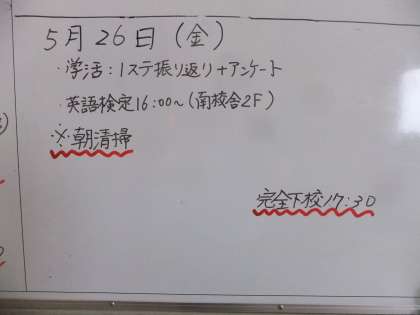 5月26日(金)
・学活:1ステ振り返り+アンケート
・英語検定16:00~(南校舎2F)
※朝清掃
完全下校17:30